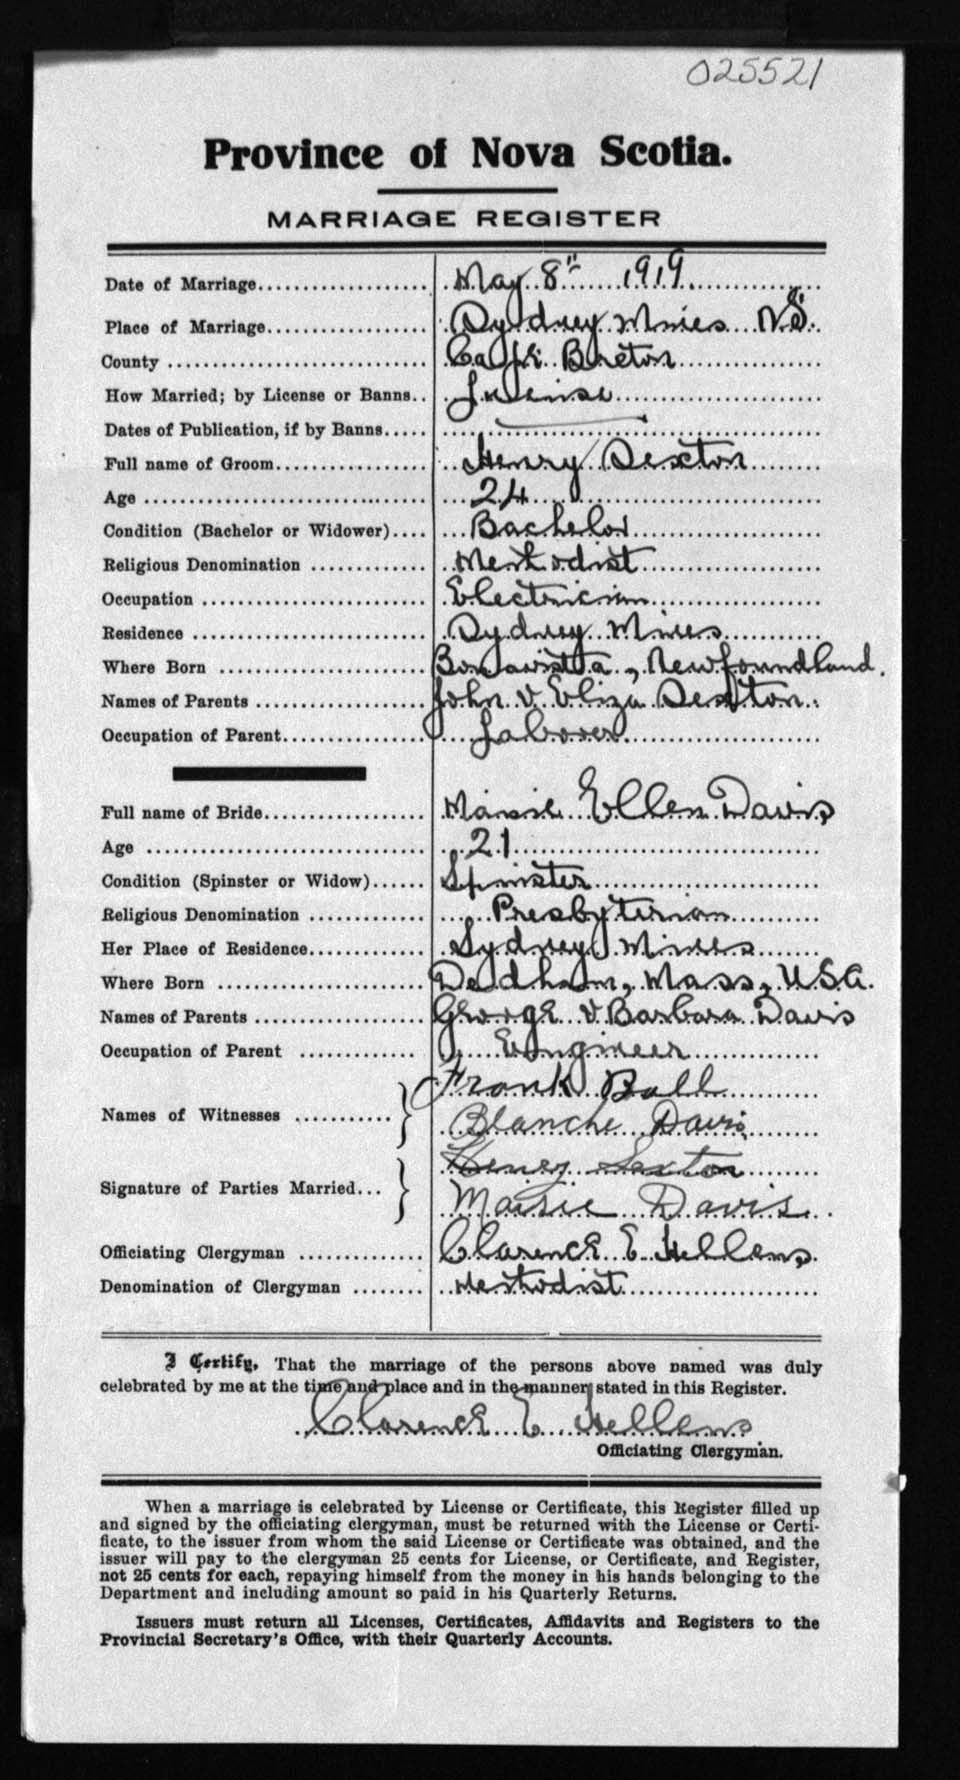 025521
Province of Nova Scotia.
MARRIAGE REGISTER
Date of Marriage May 8" 1919
Place of Marriage Sydney Mines N.S.
County Cape Breton
How Married; by License or Banns License
Dates of Publication, if by Banns
Full name of Groom Henry Sexton
Age 24
Condition (Bachelor or Widower) Bachelor
Religious Denomination Methodist
Occupation Electrician
Residence Sydney Mines
Where Born Bonavista, Newfoundland.
Names of Parents John & Eliza Sexton
Occupation of Parent Laborer
Full name of Bride Maisie Ellen Davis
Age 21
Condition (Spinster or Widow) Spinster
Religious Denomination Presbyterian
Her Place of Residence Sydney Mines
Where Born Dedham, Mass, U.S.A.
Names of Parents George & Barbara Davis
Occupation of Parent Engineer
Names of Witnesses Frank Ball
Blanche Davis
Signature of Parties Married Henry Sexton
Maisie Davis
Officiating Clergyman Clarence E Hellens
Denomination of Clergyman Methodist
I Certify, That the marriage of the persons above named was duly
celebrated by me at the time and place and in the manner stated in this Register.
Clarence E. Hellens
Officiating Clergyman.
When a marriage is celebrated by License or Certificate, this Register filled up
and signed by the officiating clergyman, must be returned with the License or Certi-
ficate, to the issuer from whom the said License or Certificate was obtained, and the
issuer will pay to the clergyman 25 cents for License, or Certificate, and Register,
not 25 cents for each, repaying himself from the money in his hands belonging to the
Department and including amount so paid in his Quarterly Returns.
Issuers must return all Licenses, Certificates, Affidavits and Registers to the
Provincial Secretary's Office, with their Quarterly Accounts.